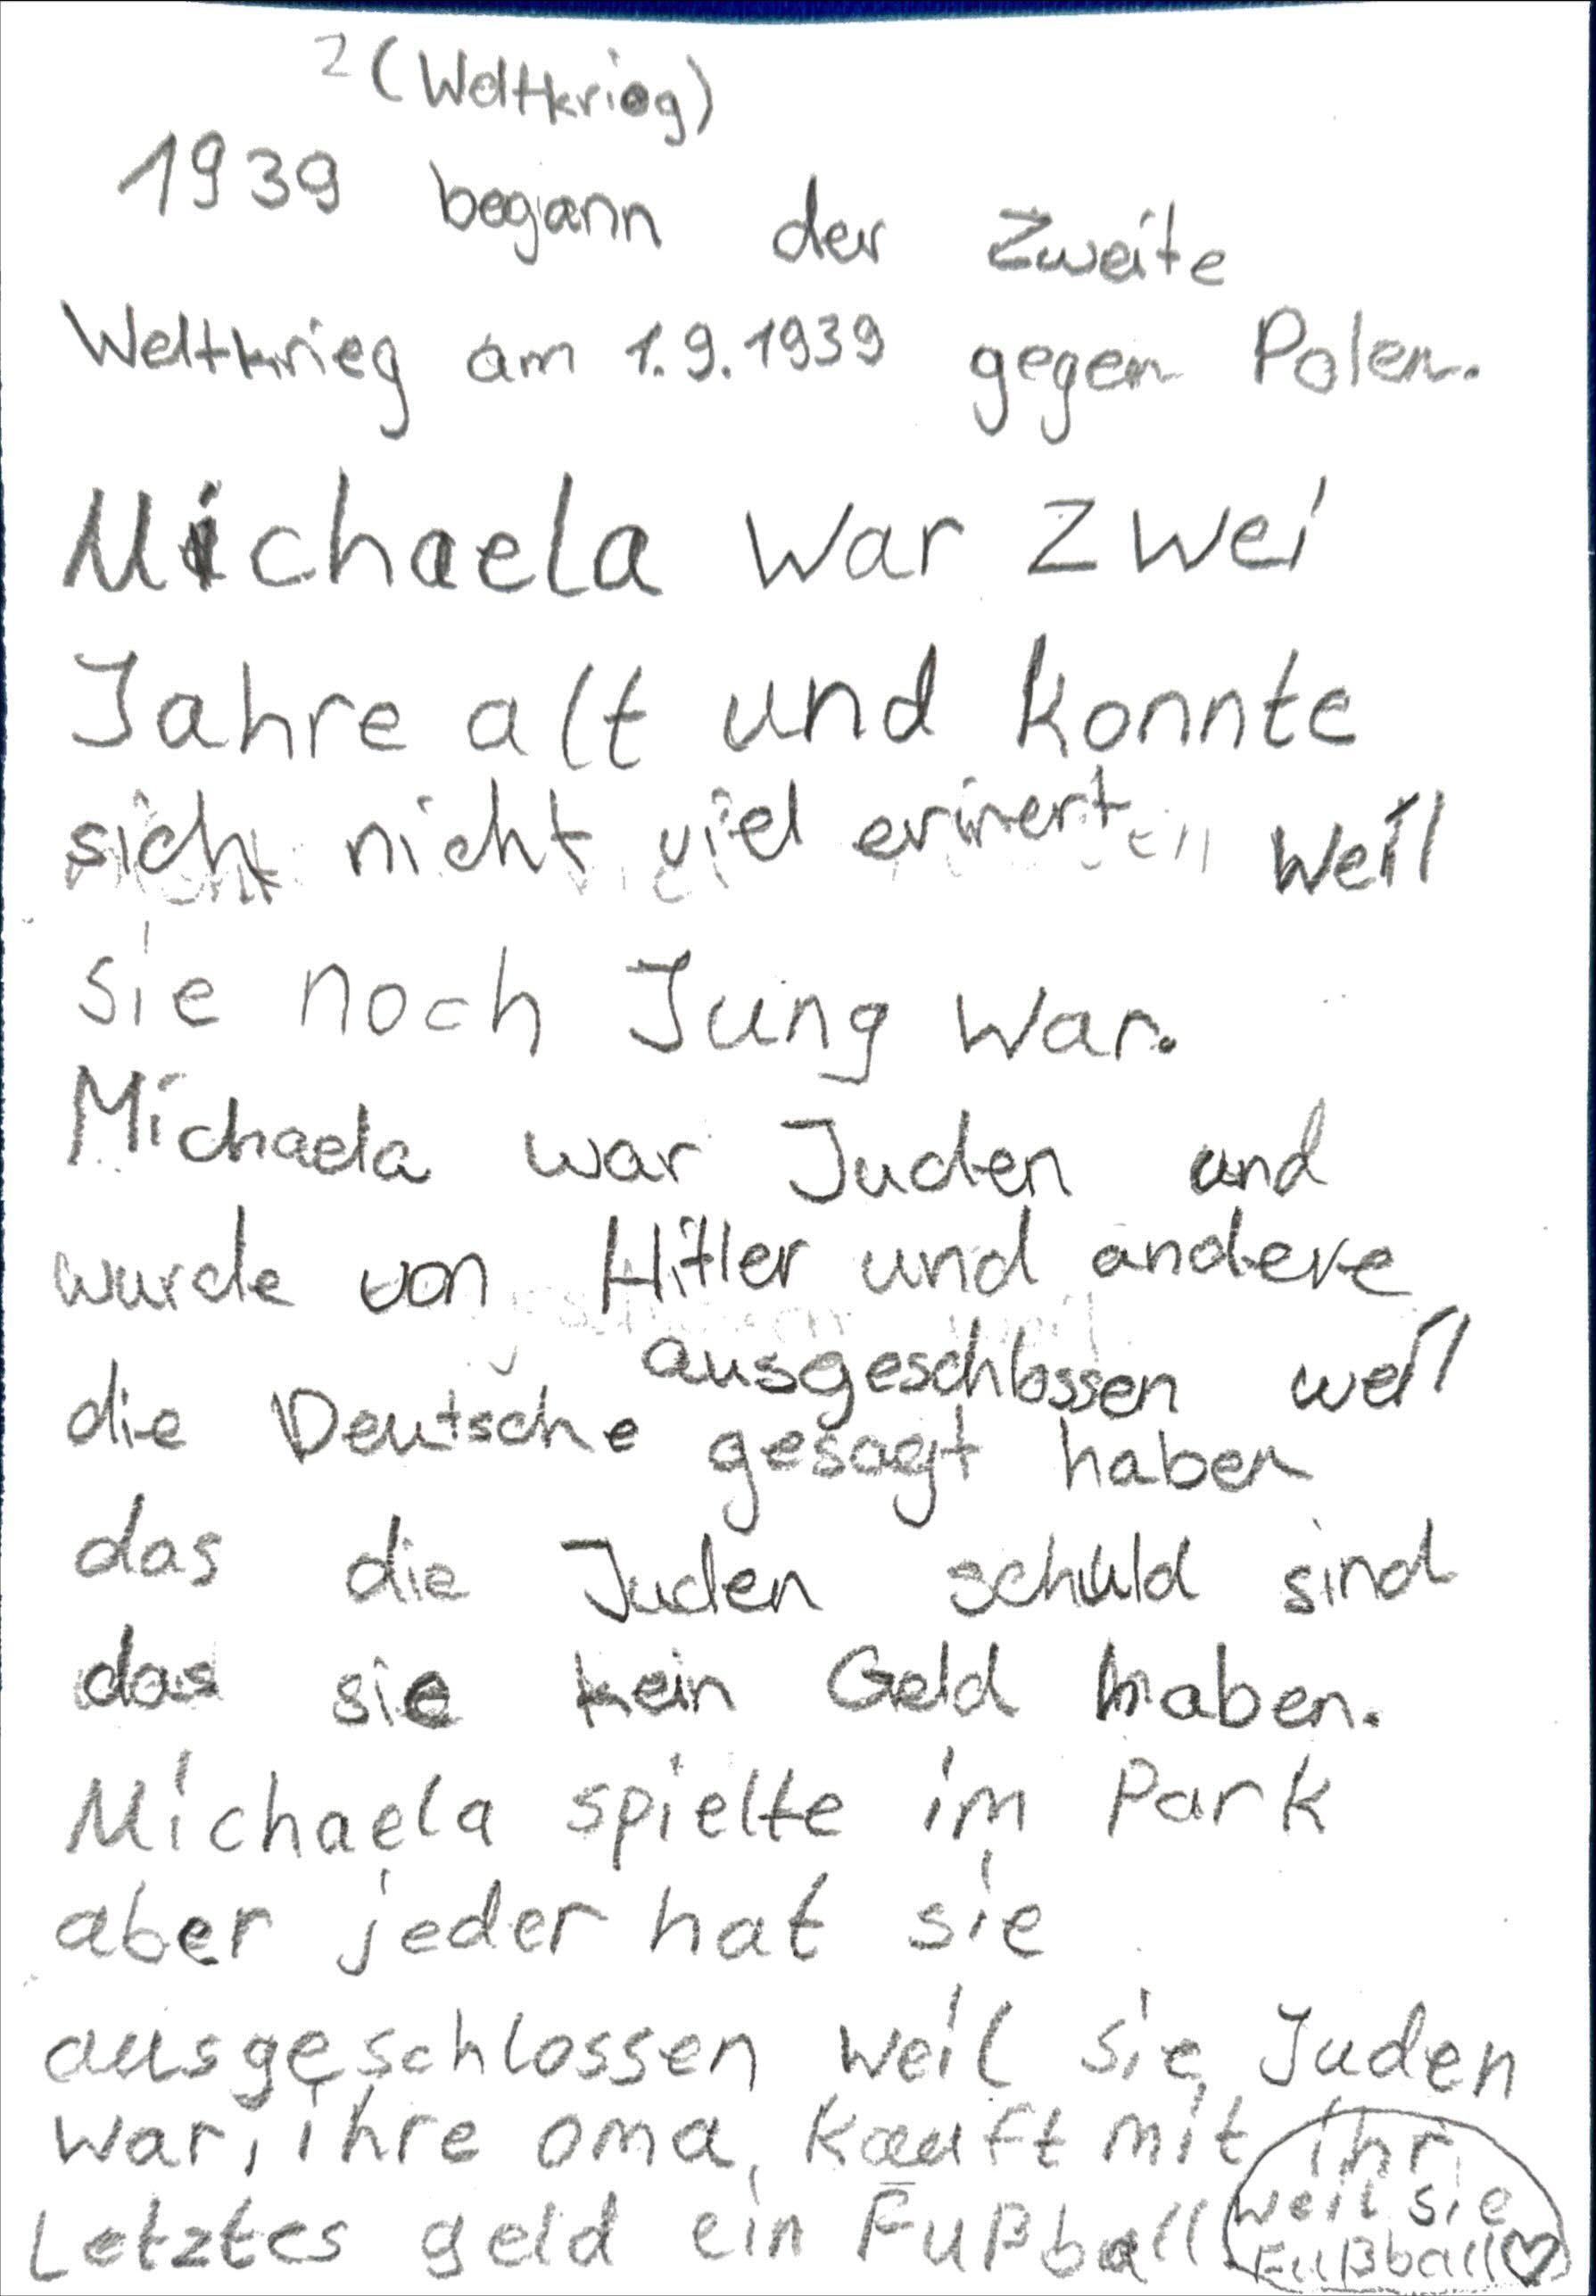 2 (Weltkrieg)
1939 begann der Zweite
Weltkrieg am 1.9.1939 gegen Polen.
Michaela war zwei
Jahre alt und konnte
sich nicht viel erinert weil
sie noch Jung war.
Michaela war Juden und
wurde von Hitler und andere
ausgeschlossen weil
die Deutsche gesagt haben
das die Juden schuld sind
das sie kein Geld haben.
Michaela spielte im Park
aber jeder hat sie
ausgeschlossen weil sie Juden
war, ihre oma, kauft mit ihr
Letztes geld ein Fußball weil sie
Fußball ♡